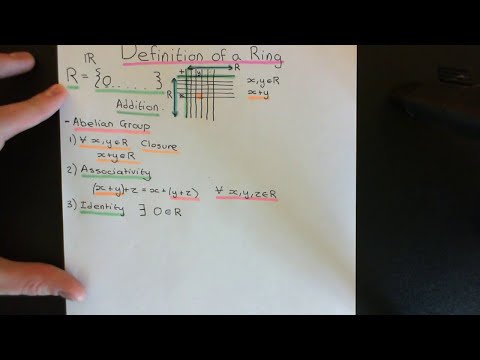 Definition of a Ring
ℝ
R = {0.......}
+ y R
R x
x,y∈R
x+y
Addition
- Abelian Group
1) ∀ x,y∈R Closure
x+y∈R
2) Associativity
(x+y)+z = x+(y+z) ∀ x,y,z∈R
3) Identity ∃ 0∈R